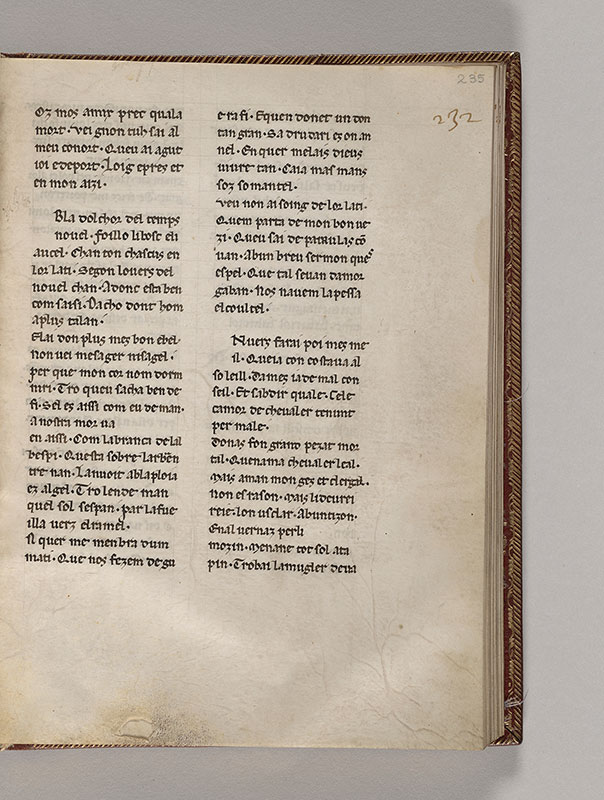 235
232
Oz mos amix prec quala
mort · vei gnon tuh sai al
meu conort · Queu ai agut
ioi e deport · Loig e pres et
en mon aizi ·
Bla dolchor del temps
nouel · foillo li bosc eli
aucel · Chanton chascus en
lor lati · Segon lo uers del
nouel chan · Adonc esta ben
com saisi · Dacho dont hom
a plus talan ·
Elai don plus mes bon ebel
non uei mesager nisagel ·
per que mon cor nom dorm
niri · Tro queu sacha ben de
fi · Sel es aissi com eu deman ·
a nostra mor ua
en aissi · Com la branca delal
bespi · Questa sobre larbẽn
tre nan · La nuoit ab la ploia
ez al gel · Tro lende man
quel sol sespan · par la fue
illa uerz el ramel ·
Al quer me menbra dum
mati · Que nos fezem de gu
era fi · Equen donet un don
tan gran · Sa drudari ez on an
nel · Enquer me lais dieus
uiure tan · Caia mas mans
soz so mantel ·
veu non ai soing de lor lati ·
Quem parta de mon bon ue
zi · Queu sai de paraulas cõ
uan · Ab un breu sermon que
espel · Que tal seuan damor
gaban · Nos nauem la pessa
el coultel ·
Nuers farai poi mez me
il · Queia con costaua al
soleill · Damez ia de mal con
seil · Et sabdir quale · Cele
camor de cheualer tenunt
per male ·
Donas fon grant pezat mor
tal · Quenama cheualer leal ·
mais aman mongez et clergal ·
non es rason · mais lideurei
reie · lon usclar · Ab un tizon ·
En al uernaz perli
mozin · Menane tot sol a ta
pin · Trobai la mugler deua